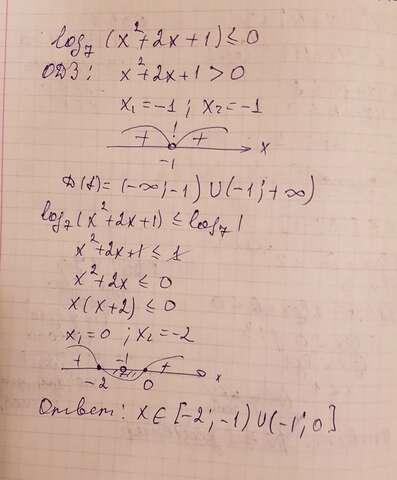 log₇ (x²+2x+1) ≤ 0
ОДЗ: x²+2x+1 > 0
x₁=-1 ; x₂=-1
+ + x
-1
D(f)= (-∞;-1) ∪ (-1;+∞)
log₇(x²+2x+1) ≤ log₇ 1
x²+2x+1 ≤ 1
x²+2x ≤ 0
x(x+2) ≤ 0
x₁=0 ; x₂=-2
+ -1 + x
-2 0
Ответ: x∈[-2;-1)∪(-1;0]